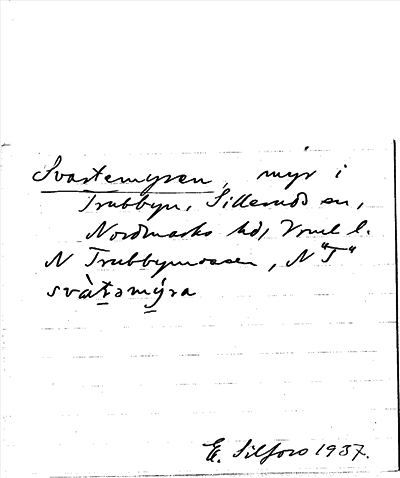 Svartemyren, myr i
Trubbyn, Sillerud sn,
Nordmarks hd, Vrml l.
N Trubbymossen, N "T"
svàt̠əmý̠ra
E. Silfors 1937.